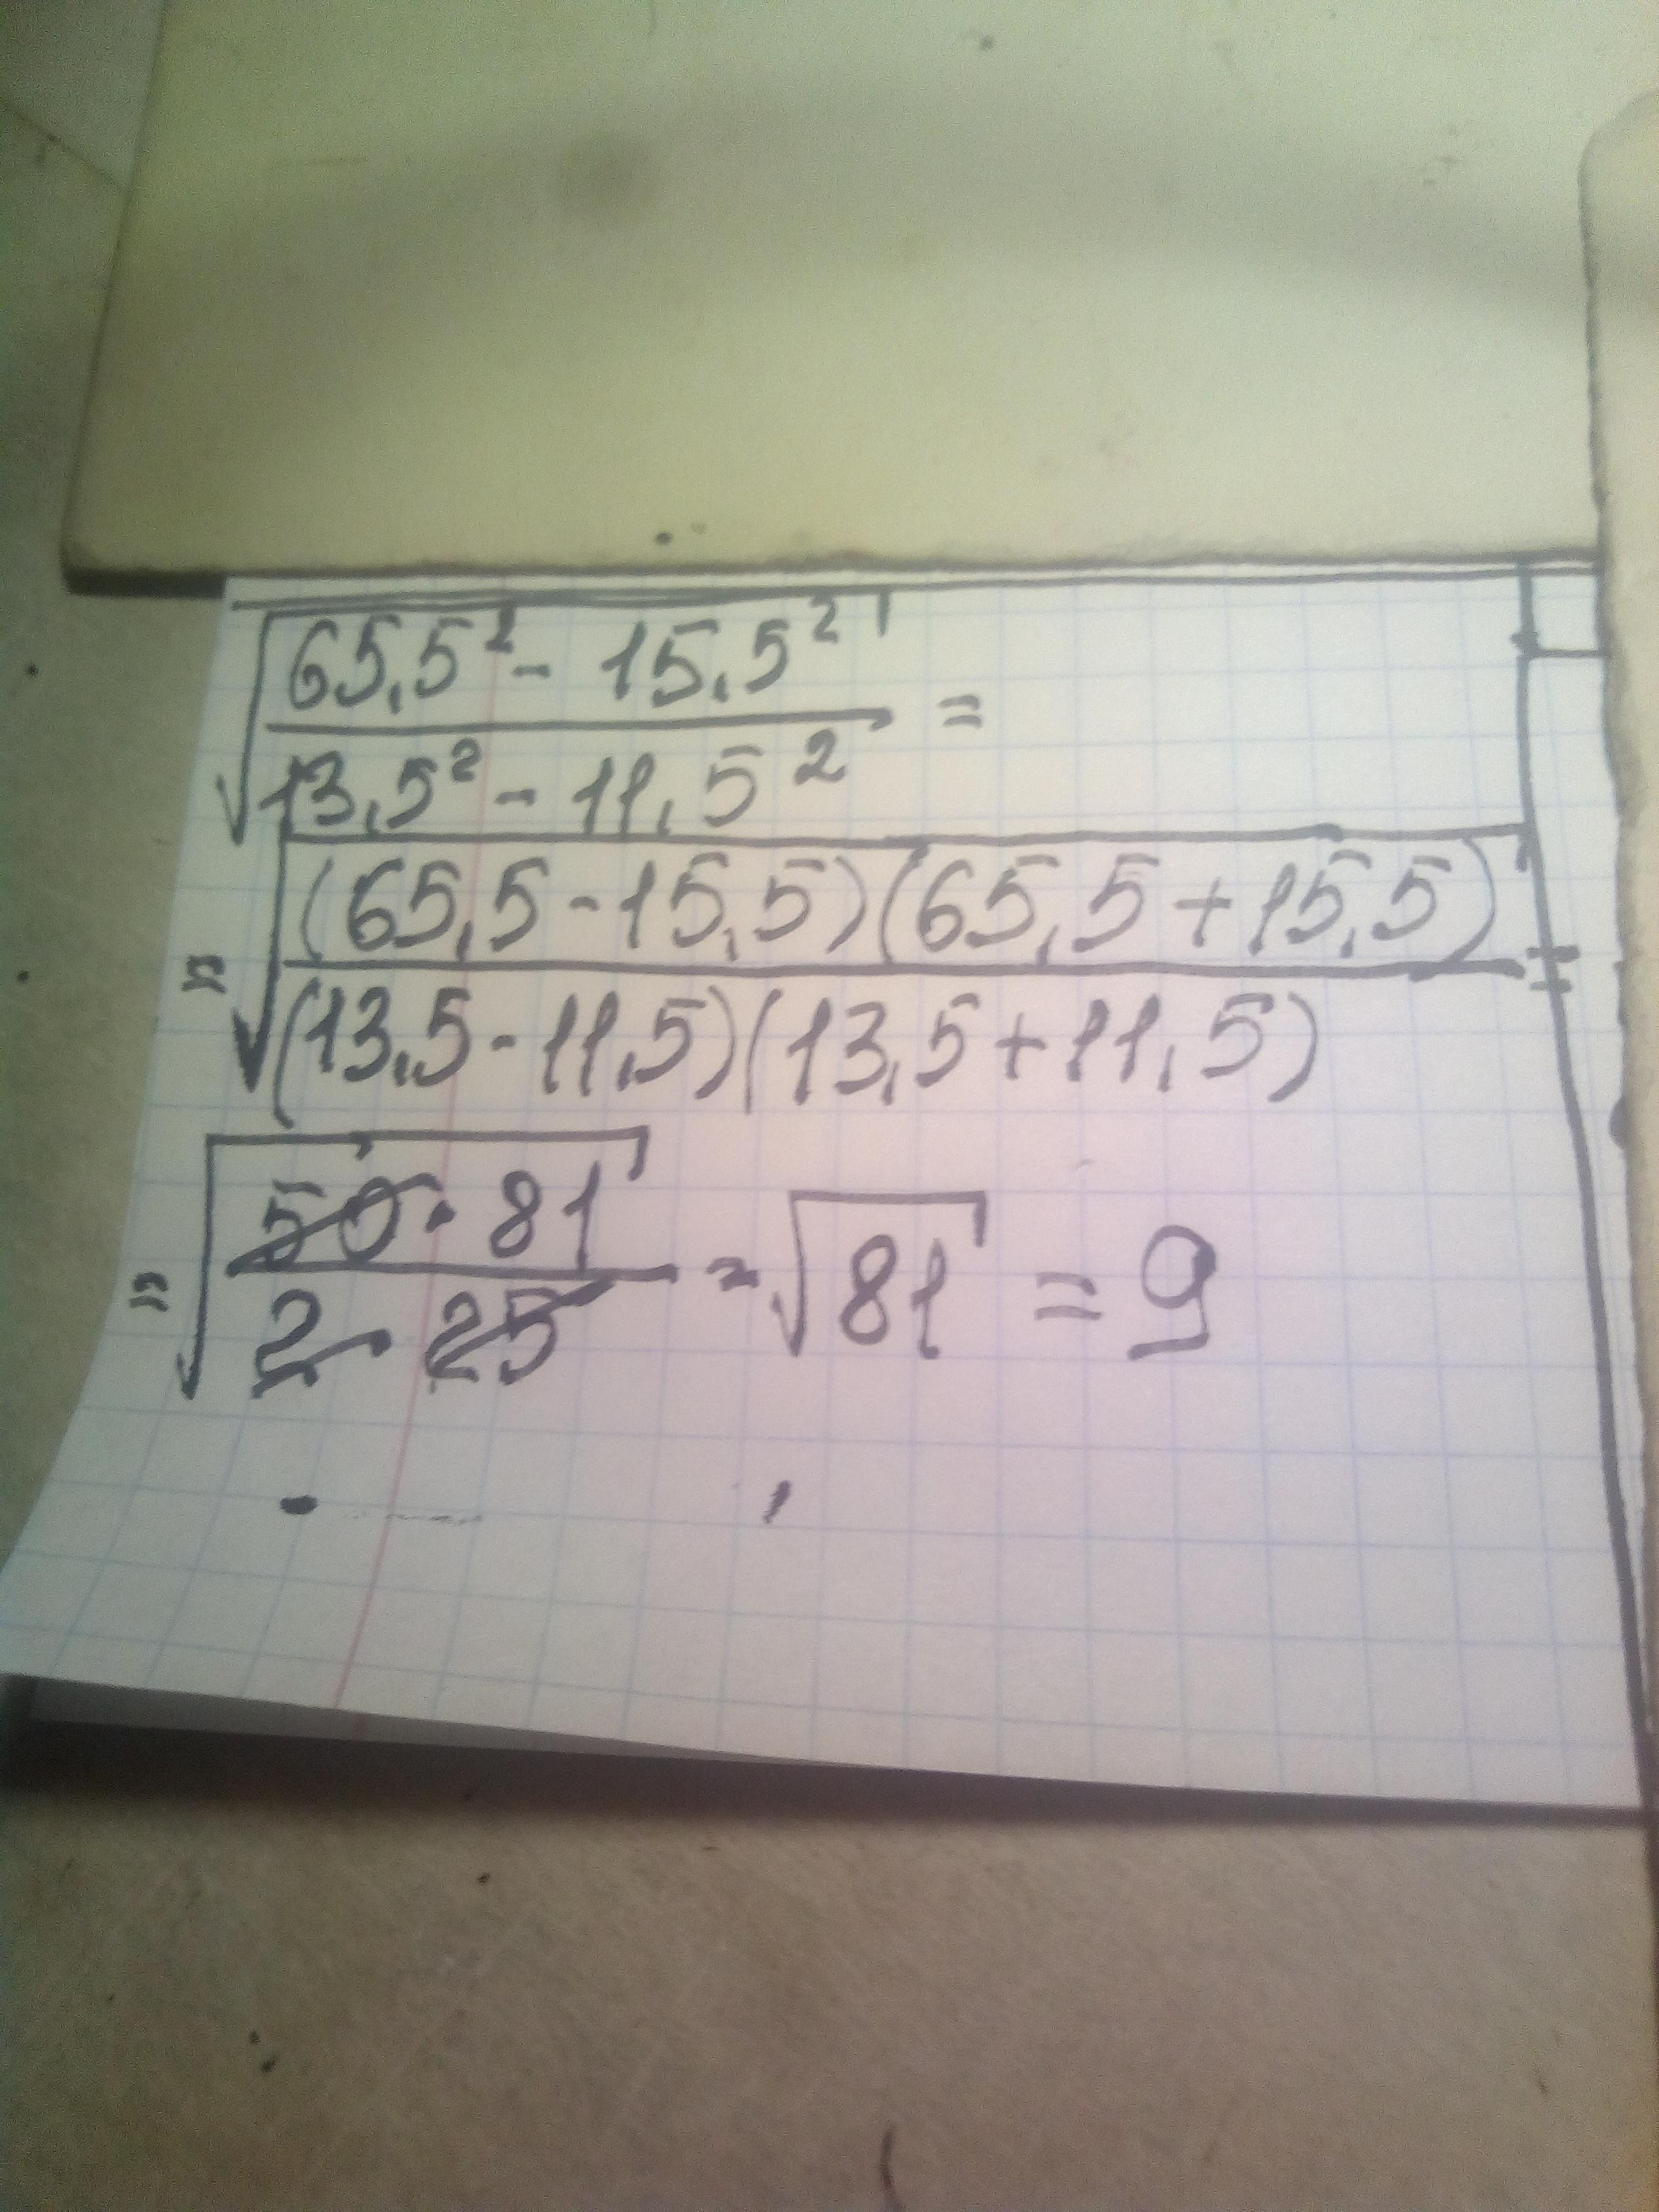 √(65,5² - 15,5²)/(13,5² - 11,5²) =
= √((65,5 - 15,5)(65,5 + 15,5))/((13,5 - 11,5)(13,5 + 11,5)) =
= √(50 · 81)/(2 · 25) = √81 = 9